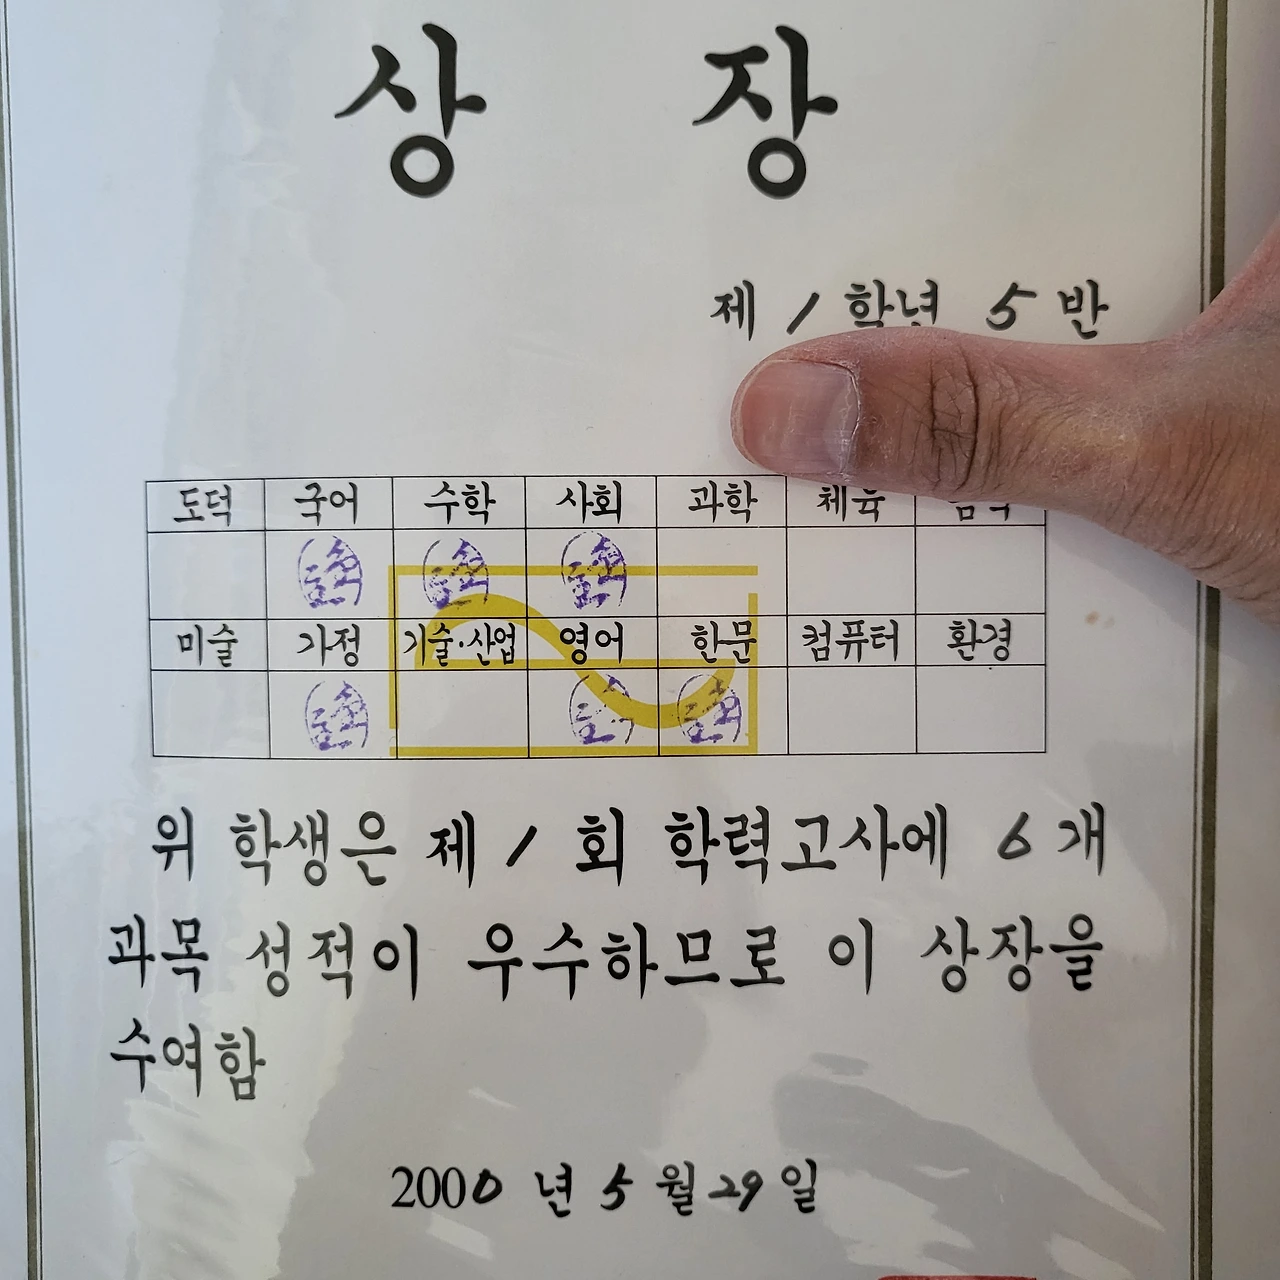 상 장
제 1 학년 5 반
도덕 국어 수학 사회 과학 체육
미술 가정 기술·산업 영어 한문 컴퓨터 환경
위 학생은 제 1 회 학력고사에 6 개
과목 성적이 우수하므로 이 상장을
수여함
2000 년 5 월 29 일